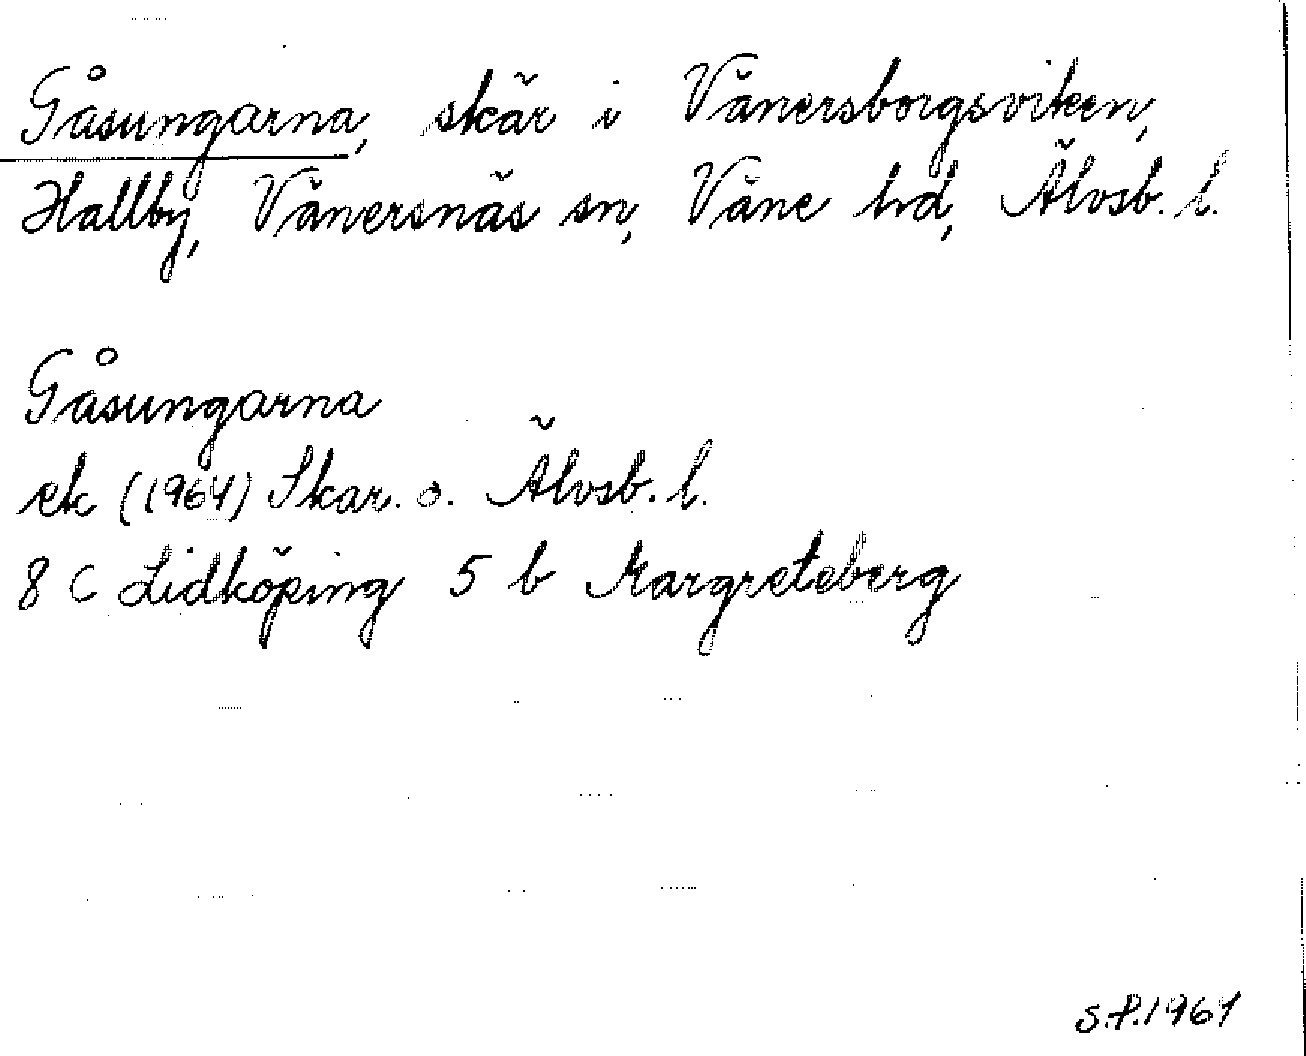 Gåsungarna, skär i Vänersborgsviken,
Hallby, Vänersnäs sn, Väne hd, Älvsb. l.
Gåsungarna
ek (1964) Skar. o. Älvsb. l.
8 C Lidköping 5 b Margreteberg
S.P. 1964